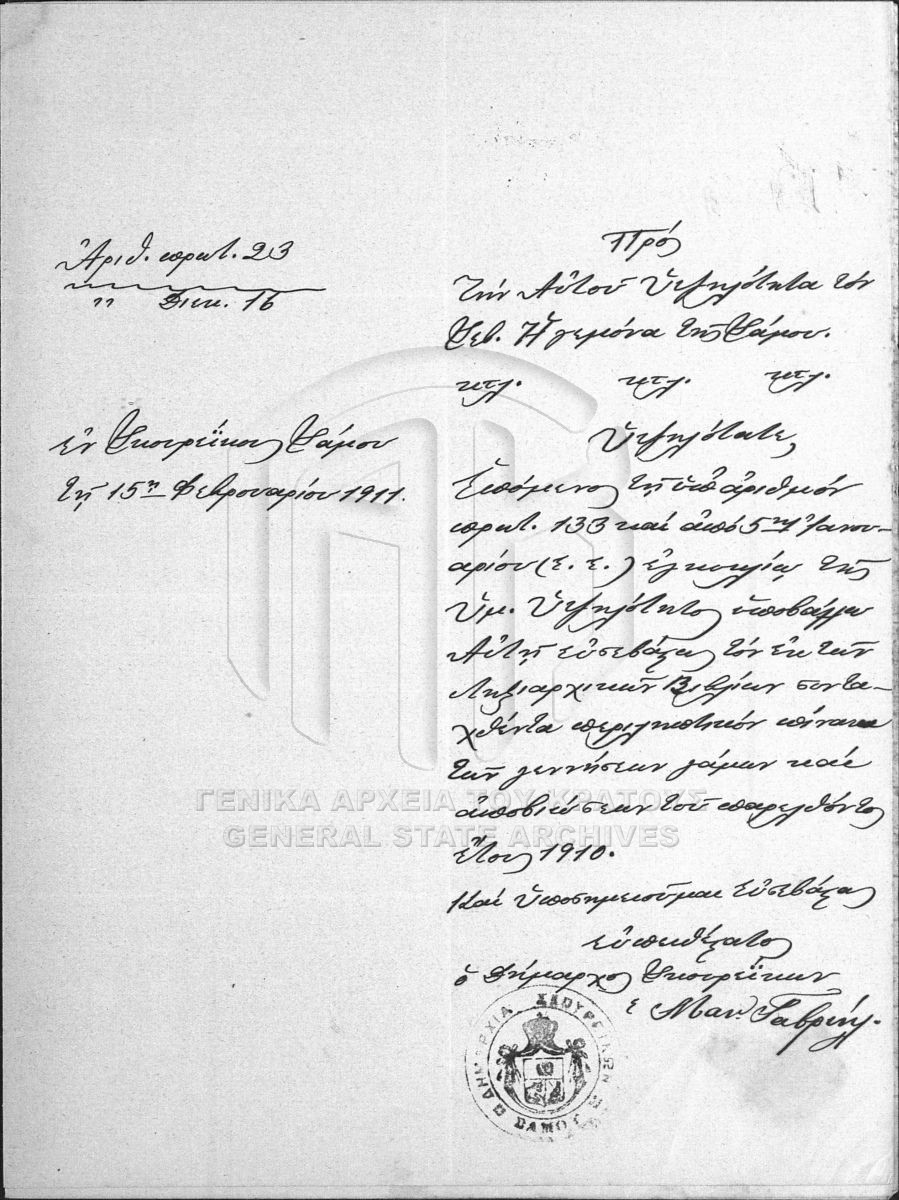 Ἀριθ. πρωτ. 23
" Διεκ. 16
Ἐν Σκουρεΐκοις Σάμου
τῇ 15ῃ Φεβρουαρίου 1911.
Πρός
Τὴν Αὐτοῦ Ὑψηλότητα τὸν
Σεβ. Ἡγεμόνα τῆς Σάμου.
κτλ. κτλ. κτλ.
Ὑψηλότατε,
Ἑπόμενος τῇ ὑπ' ἀριθμὸν
πρωτ. 133 καὶ ἀπὸ 5ης Ἰανου-
αρίου (ἔ. ἔ.) ἐγκυκλίῳ τῆς
Ὑμ. Ὑψηλότητος ὑποβάλλω
Αὐτῇ εὐσεβάστως τὸν ἐκ τῶν
Ληξιαρχικῶν Βιβλίων συντα-
χθέντα περιληπτικὸν πίνακα
τῶν γεννήσεων γάμων καὶ
ἀποβιώσεων τοῦ παρελθόντος
ἔτους 1910.
Καὶ ὑποσημειοῦμαι εὐσεβάστως
εὐπειθέστατος
ὁ Δήμαρχος Σκουρεΐκων
Ε Μαν. Γαβριήλ.
ΔΗΜΑΡΧΙΑ ΣΚΟΥΡΕΙΚΩΝ
ΣΑΜΟΥ
ΓΕΝΙΚΑ ΑΡΧΕΙΑ ΤΟΥ ΚΡΑΤΟΥΣ
GENERAL STATE ARCHIVES